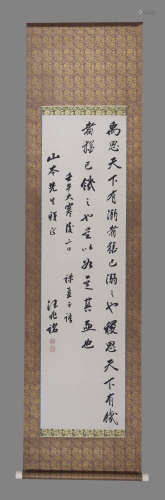 禹思天下有溺者猶己溺之也稷思天下有饑
者猶己饑之也是以如是其急也
壬午大寒後二日 錄孟子語
山本先生雅正 汪兆銘